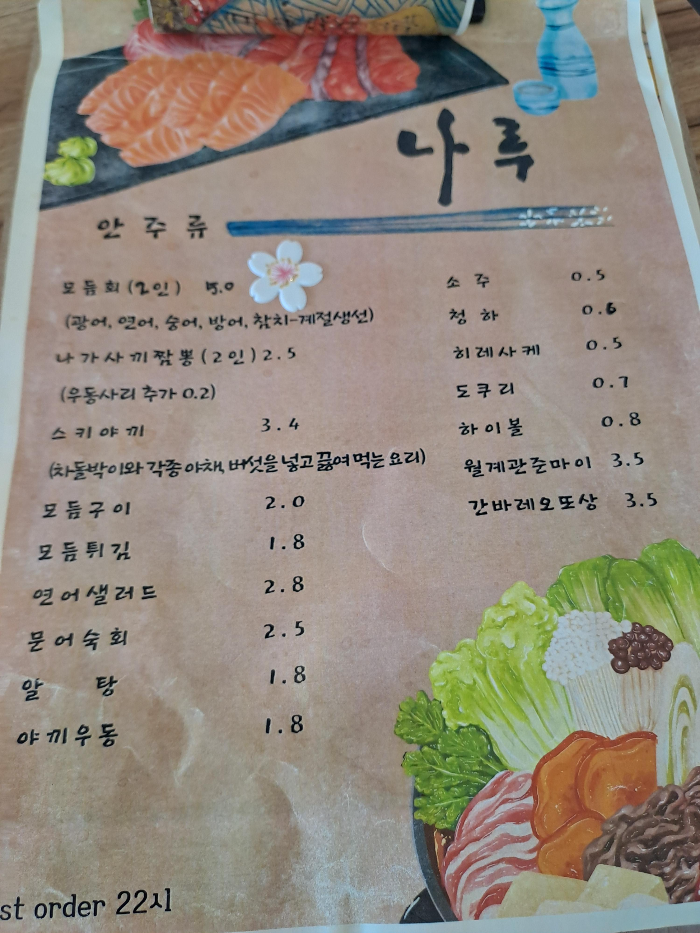 나루
안주류
모듬회(2인) 5.0
(광어, 연어, 숭어, 방어, 참치-계절생선)
나가사끼짬뽕(2인) 2.5
(우동사리 추가 0.2)
스키야끼 3.4
(차돌박이와 각종 야채, 버섯을 넣고 끓여 먹는 요리)
모듬구이 2.0
모듬튀김 1.8
연어샐러드 2.8
문어숙회 2.5
알탕 1.8
야끼우동 1.8
소주 0.5
청하 0.6
히레사케 0.5
도쿠리 0.7
하이볼 0.8
월계관준마이 3.5
간바레오또상 3.5
st order 22시